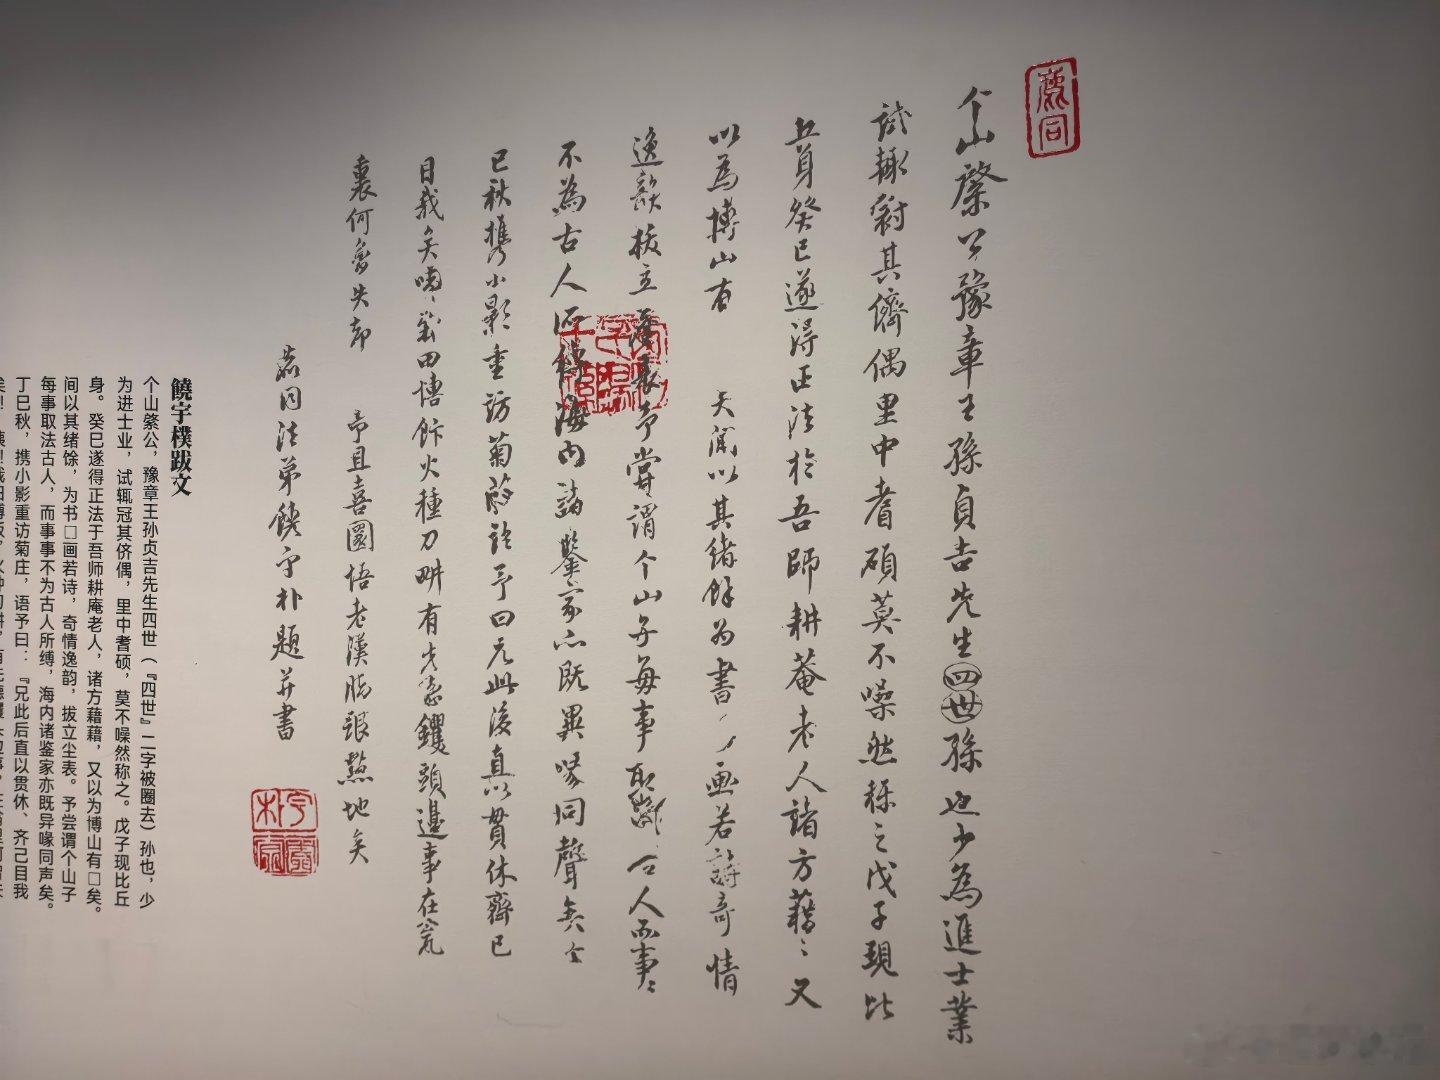 个山綮公豫章王孫貞吉先生四世孫也少為進士業
試輙冠其儕偶里中耆碩莫不噪然稱之戊子現比
丘身癸巳遂得正法於吾師耕菴老人諸方藉〻又
以為博山有
天 以其緒餘为書
画若詩奇情
逸韻拔立塵表予嘗謂个山子每事取 古人而事〻
不為古人所縛海内諸鑒家亦既異喙同聲矣
巳秋攜小影重訪菊莊語予曰兄此後直以貫休齊己
目我矣咦 田博飯火種刀畊有先德钁頭邊事在瓮
裏何曾失却
予且喜圜悟老漢脚跟 地矣
法弟饒宇朴題并書
饶宇樸跋文
个山綮公，豫章王孙贞吉先生四世（『四世』二字被圈去）孙也，少
为进士业，试辄冠其侪偶，里中耆硕，莫不噪然称之。戊子现比丘
身。癸巳遂得正法于吾师耕庵老人，诸方藉藉，又以为博山有□矣。
间以其绪馀，为书□画若诗，奇情逸韵，拔立尘表。予尝谓个山子
每事取法古人，而事事不为古人所缚，海内诸鉴家亦既异喙同声矣。
丁巳秋，携小影重访菊庄，语予曰：『兄此后直以贯休、齐己目我